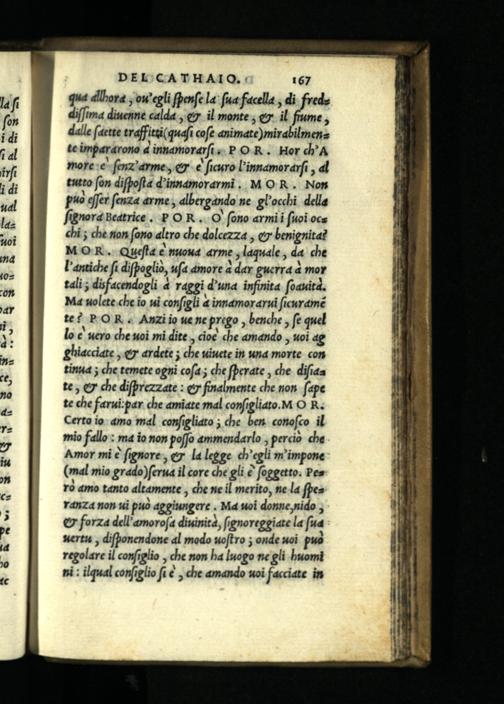 DEL CATHAIO. 167
qua allhora, ou'egli spense la sua facella, di fred=
dissima diuenne calda, & il monte, & il fiume,
dalle saette traffitti(quasi cose animate)mirabilmen=
te impararono à innamorarsi. POR. Hor ch'A
more è senz'arme, & è sicuro l'innamorarsi, al
tutto son disposta d'innamorarmi. MOR. Non
può esser senza arme, albergando ne gl'occhi della
signora Beatrice. POR. O' sono armi i suoi oc=
chi; che non sono altro che dolcezza, & benignità?
MOR. Questa è nuoua arme, laquale, da che
l'antiche si dispogliò, usa amore à dar guerra à mor
tali; disfacendogli à raggi d'una infinita soauità.
Ma uolete che io ui consigli a innamorarui sicuramē
te? POR. Anzi io ue ne prego, benche, se quel
lo è uero che uoi mi dite, cioè che amando, uoi ag
ghiacciate, & ardete; che uiuete in una morte con
tinua; che temete ogni cosa; che sperate, che disia=
te, & che disprezzate: & finalmente che non sape
te che farui: par che amiate mal consigliato. MOR.
Certo io amo mal consigliato; che ben conosco il
mio fallo: ma io non posso ammendarlo, perciò che
Amor mi è signore, & la legge ch'egli m'impone
(mal mio grado)serua il core che gli è soggetto. Pe=
rò amo tanto altamente, che ne il merito, ne la spe=
ranza non ui può aggiungere. Ma uoi donne, nido,
& forza dell'amorosa diuinità, signoreggiate la sua
uertu, disponendone al modo uostro; onde uoi può
regolare il consiglio, che non ha luogo ne gli huomi
ni: ilqual consiglio si è, che amando uoi facciate in